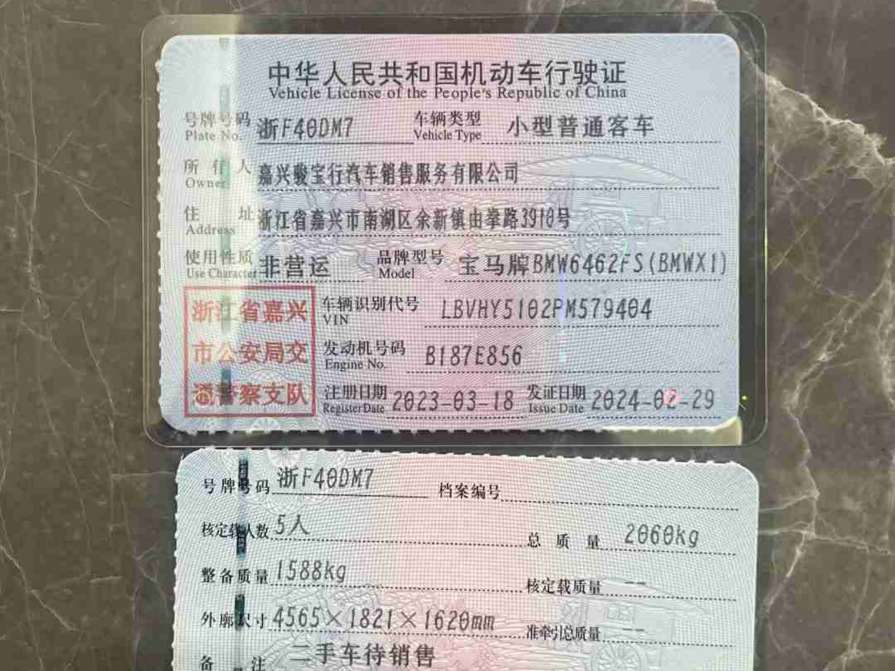 中华人民共和国机动车行驶证
Vehicle License of the People's Republic of China
号牌号码 浙F40DM7 车辆类型 小型普通客车
Plate No. Vehicle Type
所有人 嘉兴骏宝行汽车销售服务有限公司
Owner
住址 浙江省嘉兴市南湖区余新镇由拳路3910号
Address
使用性质 非营运 品牌型号 宝马牌BMW6462FS(BMWX1)
Use Character Model
浙江省嘉兴
市公安局交
通警察支队
车辆识别代号 LBVHY5102PM579404
VIN
发动机号码 B187E856
Engine No.
注册日期 2023-03-18 发证日期 2024-02-29
Register Date Issue Date
号牌号码 浙F40DM7 档案编号
核定载人数 5人 总质量 2060kg
整备质量 1588kg 核定载质量 --
外廓尺寸 4565×1821×1620mm 准牵引总质量 --
备注 二手车待销售